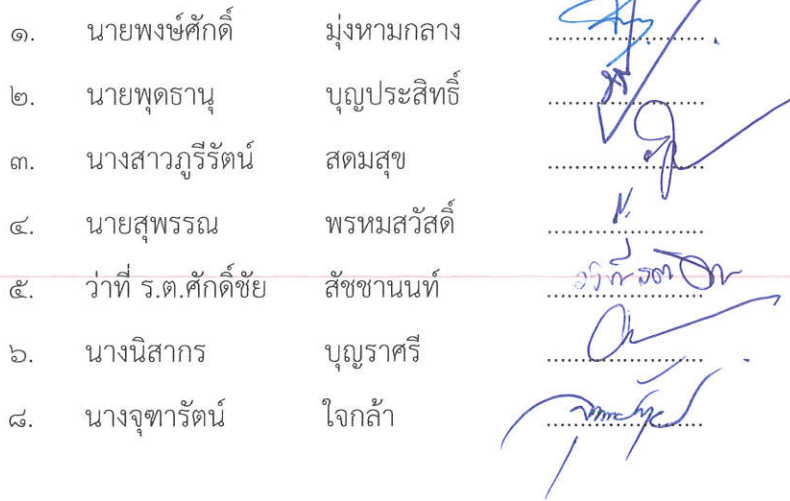 ๑. นายพงษ์ศักดิ์ มุ่งหามกลาง
๒. นายพุดธานุ บุญประสิทธิ์
๓. นางสาวภูรีรัตน์ สดมสุข
๔. นายสุพรรณ พรหมสวัสดิ์
๕. ว่าที่ ร.ต.ศักดิ์ชัย สัชชานนท์
๖. นางนิสากร บุญราศรี
๘. นางจุฑารัตน์ ใจกล้า